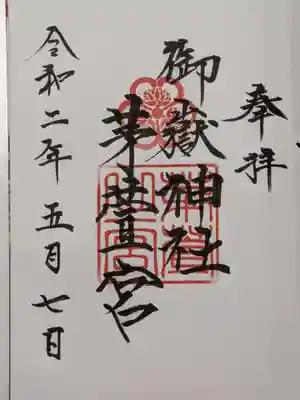 奉拝
御嶽神社
茅萱宮
令和二年 五月 七日